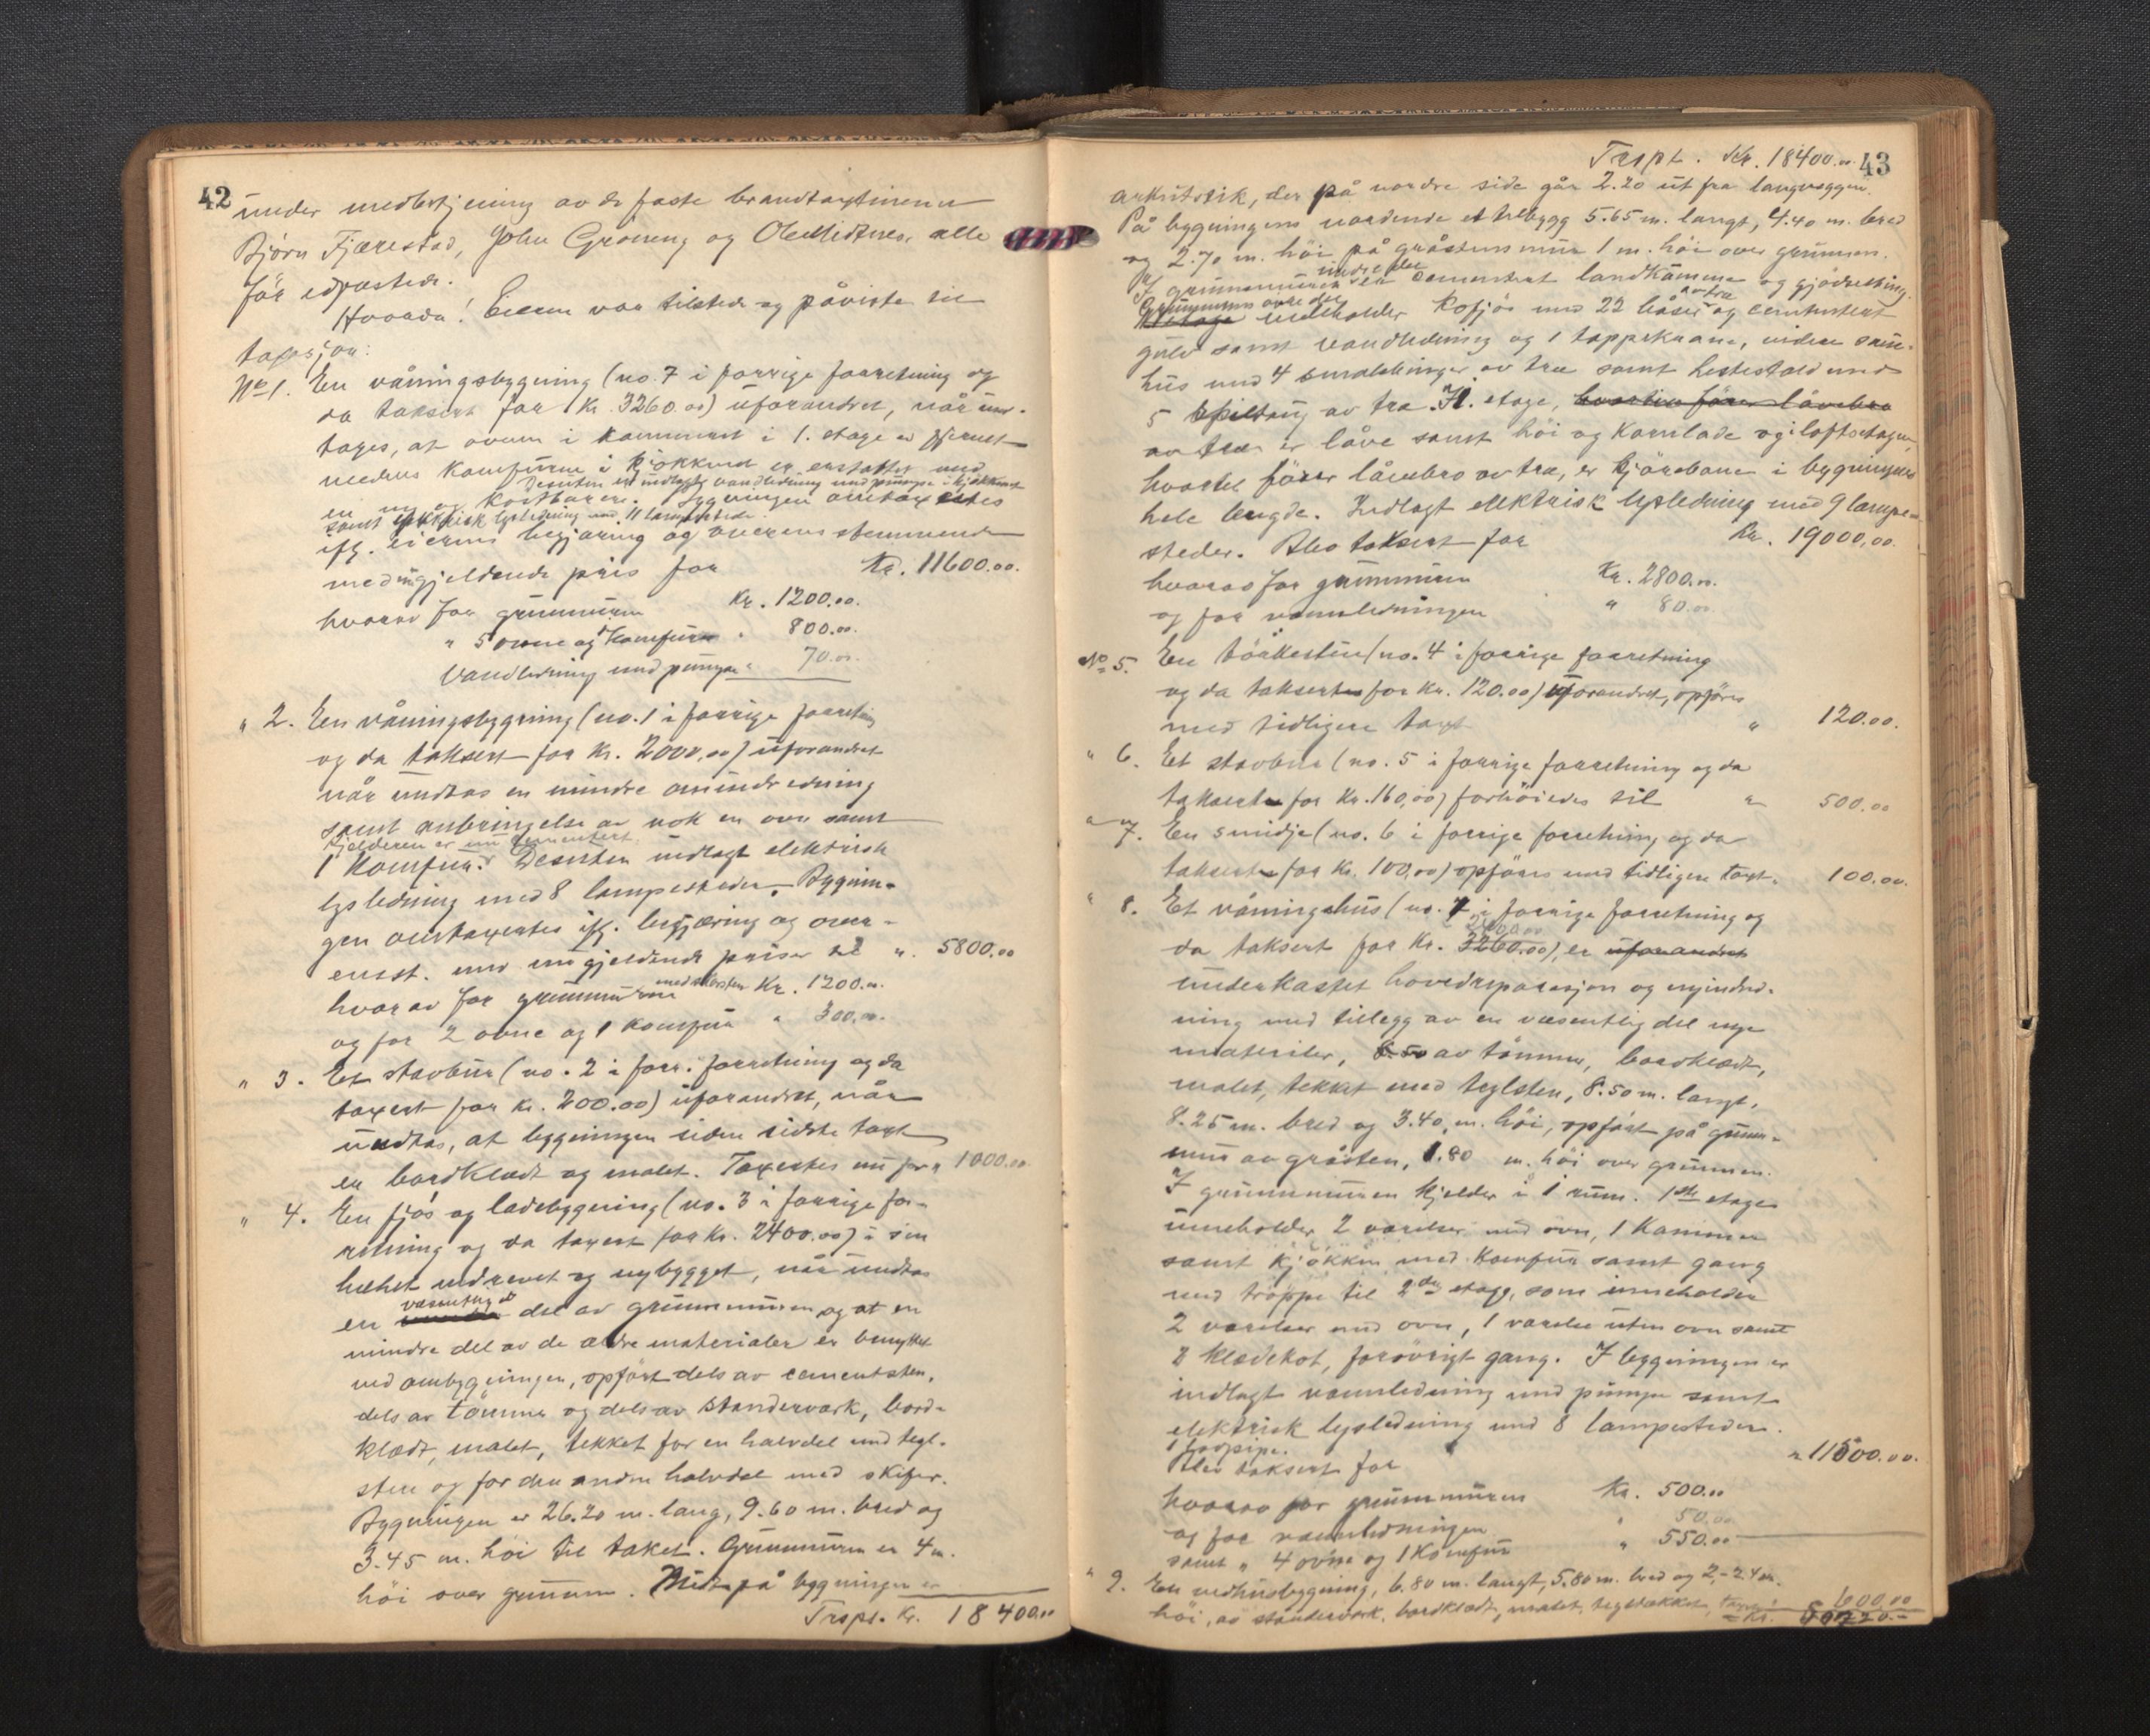 42
under medbetjening av de faste brandtaxtmenn
Björn Fjærestad, John Gröneng og Ole Midtnes, alle
för edfæstede.
Hvorda! Eieren var tilstede og påviste til
taxasjon:
No 1. En våningsbygning (no. 7 i forrige forretning og
da taksert for Kr. 3260.00) uforandret, når und-
tages, at ovnen i kammeret i 1. etage er fjernet
medens komfuren i kjökkenet er erstattet med
Desuten er indlagt vandledning med pumpe i kjökkenet
en ny og kostbarere. Bygningen omtaxertes
samt elektrisk lysledning med 11 lampesteder
ifg. eierens begjæring og overensstemmende
med nugjeldende pris for Kr. 11600.00.
hvorav for grunmuren Kr. 1200.00.
" 5 ovne og komfur " 800.00.
Vandledning med pumpe " 70.00.
" 2. En våningsbygning (no. 1 i forrige forretning
og da taksert for Kr. 2000,00) uforandret
når undtas en mindre omindredning
samt anbringelse av nok en ovn samt
Kjelderen er nu cementert.
1 komfur. Desuten indlagt elektrisk
lysledning med 8 lampesteder. Bygnin-
gen omtaxertes ifg. begjæring og over-
ensst. med nugjeldende priser til ". 5800.00
hvorav for grunmuren med skorsten Kr. 1200.00.
og for 2 ovne og 1 komfur " 300.00.
" 3. Et stavbur (no. 2 i forr. forretning og da
taxert for kr. 200.00) uforandret, når
undtas, at bygningen siden sidste taxt
er bordklædt og malet. Taxertes nu for " 1000.00
" 4. En fjös og ladebygning (no. 3 i forrige for-
retning og da taxert for Kr. 2400.00) i sin
helhet nedrevet og nybygget, når undtas
en væsentlig del av grunnmuren og at en
mindre del av de ældre materialer er benyttet
ved ombygningen, opfört dels av cementsten,
dels av tömmer og dels av standerverk, bord-
klædt, malet, tekket for en halvdel med tegl-
sten og for den andre halvdel med skifer.
Bygningen er 26.20 m. lang, 9.60 m. bred og
3.45 m. höi til taket. Grunmuren er 4 m.
höi over grunnen. Midt på bygningen er
Trspt. Kr. 18400.00
Trspt. Kr. 18400.00 43
arkutstik, der på nordre side går 2.20 ut fra langveggen.
På bygningens nordende et tilbygg 5.65 m. langt, 4.40 m. bred
og 2.70 m. höi på gråstensmur 1 m. höi over grunnen.
I grunmuren nedre del er cementert landkumme og gjödselsing.
Grunmurens övre del
indeholder kofjös med 22 båser av træ og cementert
gulv samt vandledning og 1 tappekrane, videre sau-
hus med 4 avdelinger av træ samt hestestald med
5 spiltaug av træ. II. etage, hvortil förer låvebro
av træ er låve samt höi og kornlade og i loftsetagen,
hvortil förer låvebro av træ, er kjörebane i bygningens
hele lengde. Indlagt elektrisk lysledning med 9 lampe-
steder. Blev taksert for Kr. 19000,00.
hvorav for grunmuren Kr. 2800.00.
og for vannledningen " 80.00
No 5. En törkestue (no. 4 i forrige forretning
og da taksert for Kr. 120.00) uforandret, opföres
med tidligere taxt " 120.00.
" 6. Et stavbur (no. 5 i forrige forretning og da
taksert for Kr. 160,00) forhöiedes til " 500.00
" 7. En smidje (no. 6 i forrige forretning og da
taksert for Kr. 100,00) opföres med tidligere taxt. 100.00.
" 8. Et våningshus (no. 7 i forrige forretning og
da taksert for Kr. 3260.00), er uforandret
underkastet hovedreparasjon og nyindred-
ning med tillegg av en væsentlig del nye
materialer, av tömmer, bordklædt,
malet, tekket med teglsten, 8.50 m. langt,
8.25 m. bred og 3.40 m. höi, opfört på grunn-
mur av gråsten, 1.80 m. höi over grunnen.
I grunnmuren kjelder i 1 rum. 1ste etage
inneholder 2 værelser med ovn, 1 kammer
samt kjökken med komfur samt gang
med trappe til 2den etage, som inneholder
2 værelser med ovn, 1 værelse uten ovn samt
2 klædekot, forövrigt gang. I bygningen er
indlagt vannledning med pumpe samt
elektrisk lysledning med 8 lampesteder.
Blev taksert for " 11500.00.
hvorav for grunnmuren Kr. 500.00
og for vannledningen " 50.00
samt " 4 ovne og 1 komfur " 550.00
" 9. En vedhusbygning, 6.80 m. langt, 5.80 m. bred og 2,-2.4 m.
höi, av standerverk, bordklædt, malet, tegltækket, 600.00
Kr.